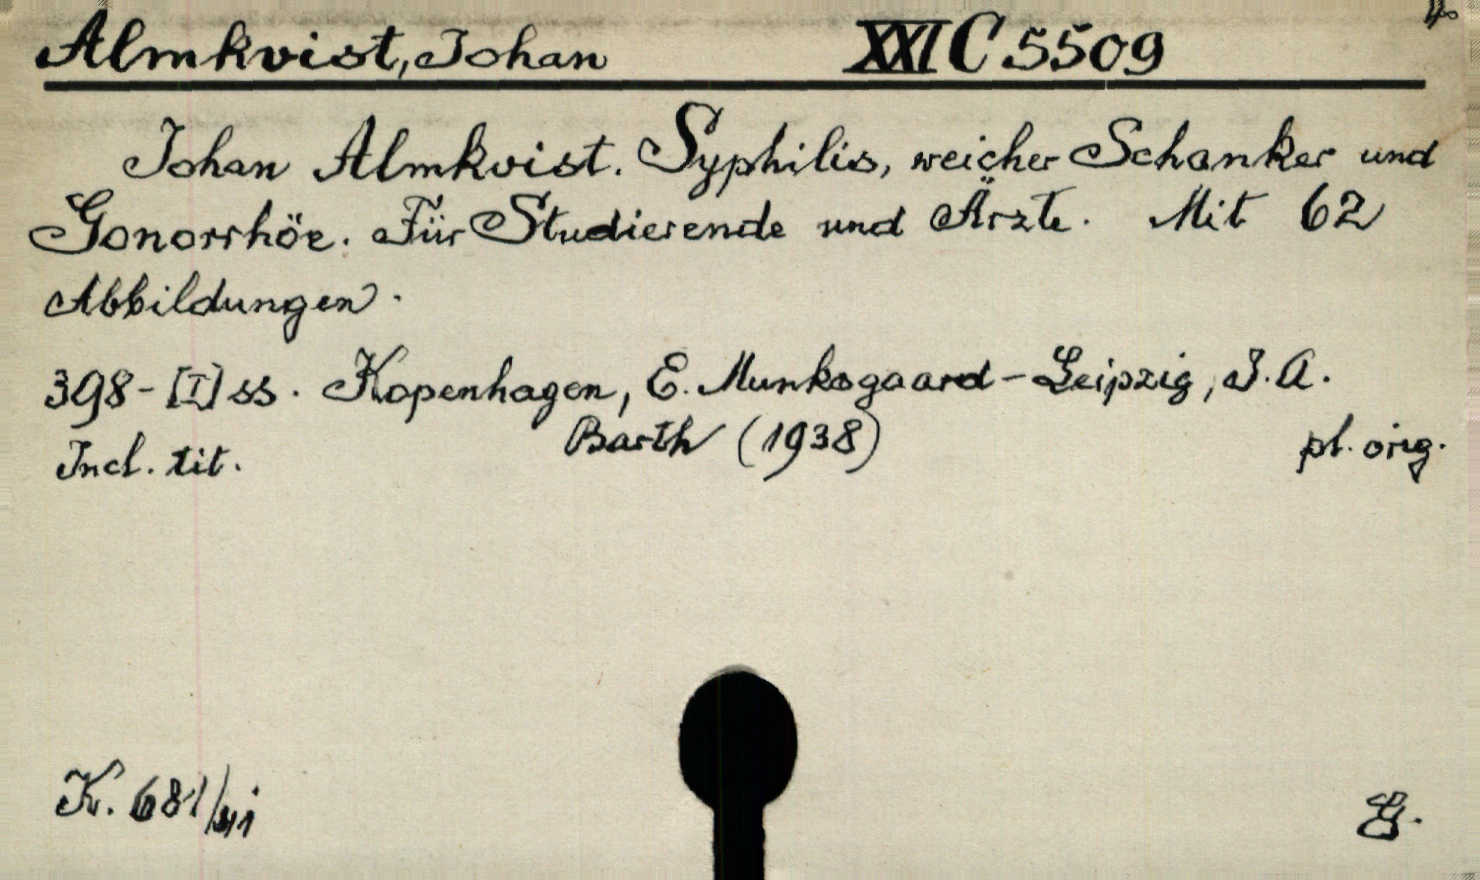 Almkvist, Johan XXI C 5509
Johan Almkvist. Syphilis, weicher Schanker und
Gonorrhöe. Für Studierende und Ärzte. Mit 62
Abbildungen.
398-[I] ss. Kopenhagen, E. Munksgaard-Leipzig, J. A.
Barth (1938)
Incl. tit. pl. orig.
K. 681/41